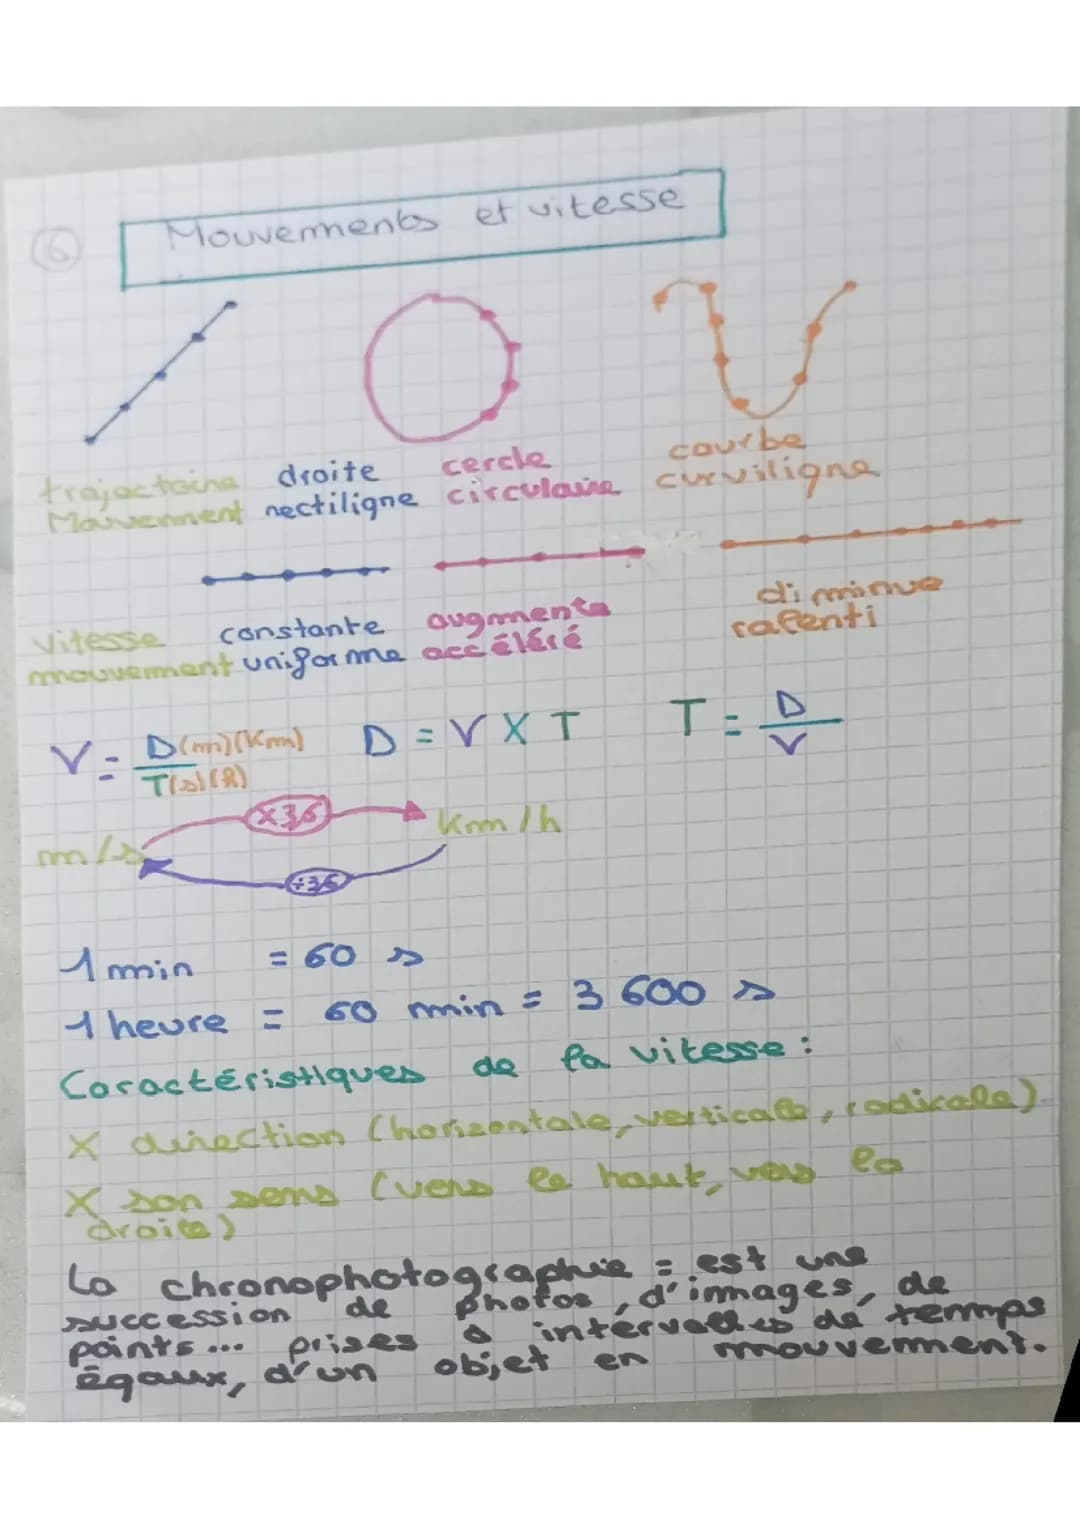 6
Mouvements et vitesse
trajectoire droite cercle courbe
Mouvement rectiligne circulaire curviligne
vitesse constante augmente diminue
mouvement uniforme accéléré ralenti
V = D(m)(Km) / T(s)(h) D = V X T T = D / V
m/s x3,6 Km/h
÷3,6
1 min = 60 s
1 heure = 60 min = 3 600 s
Caractéristiques de la vitesse :
X direction (horizontale, verticale, radicale)
X son sens (vers le haut, vers la
droite)
La chronophotographie = est une
succession de photos, d'images, de
points... prises à intervalles de temps
égaux, d'un objet en mouvement.